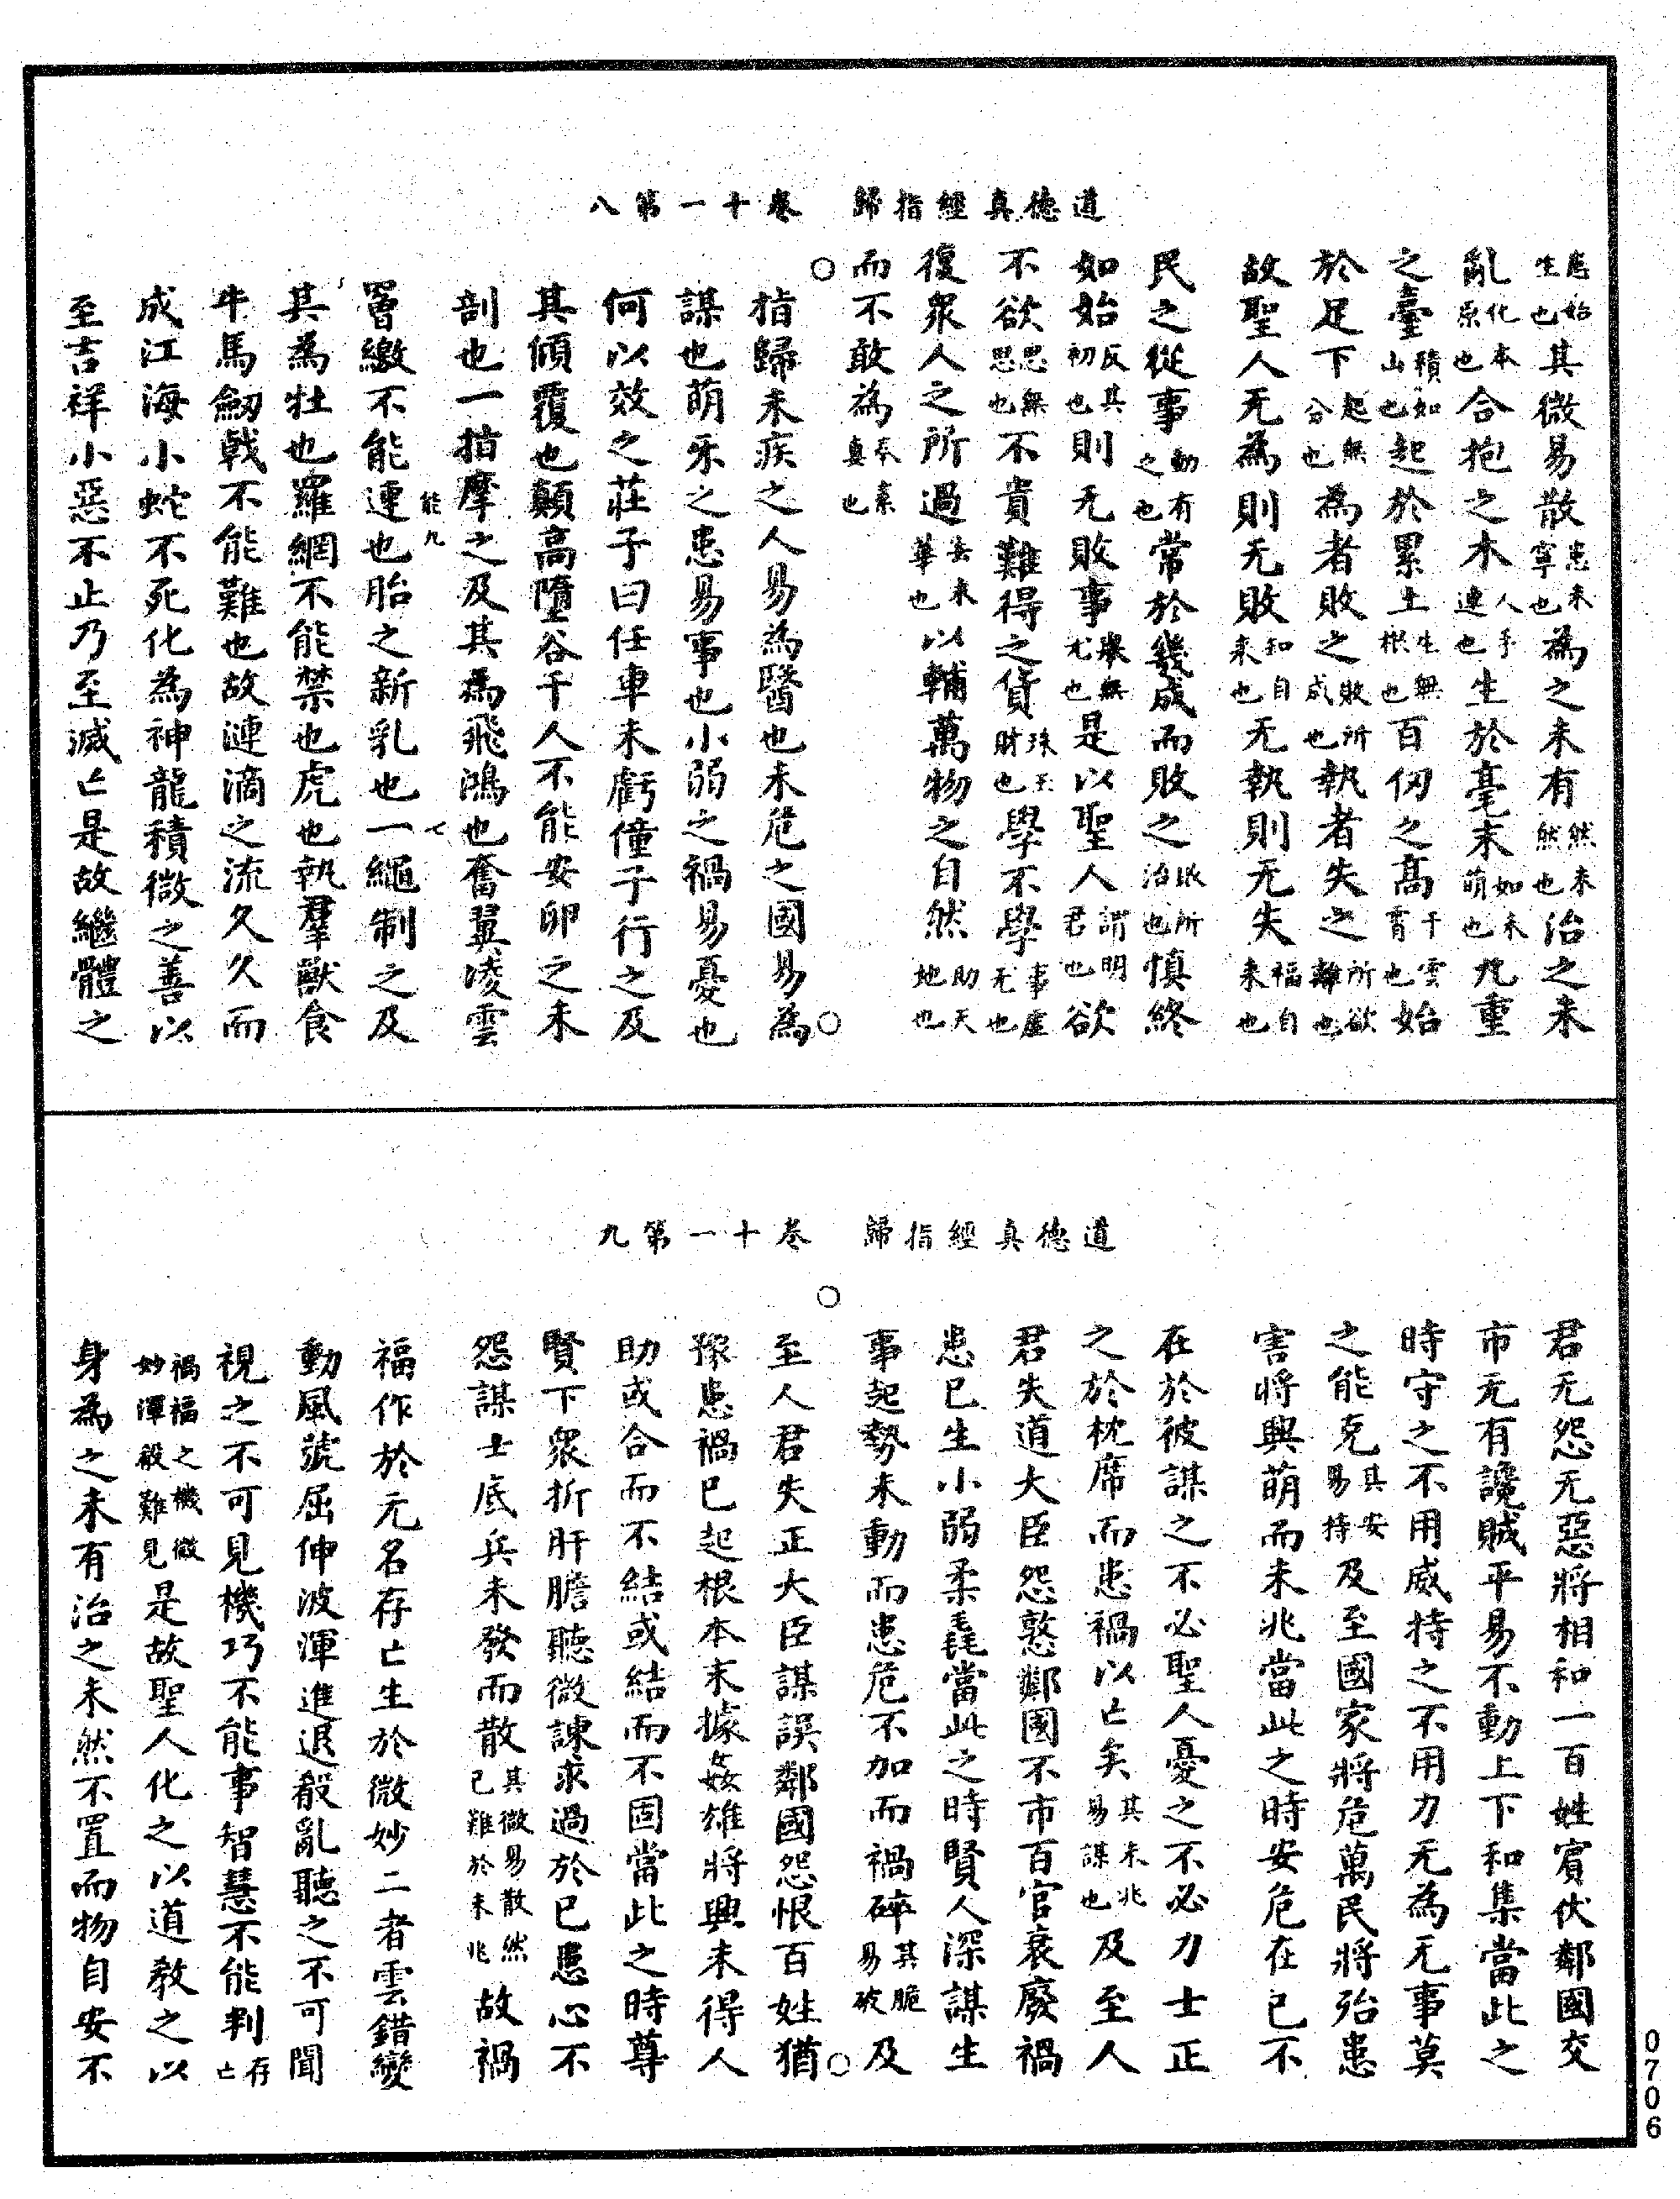 道德真經指歸　卷十一第八
應始生也其微易散患未寧也為之未有然未然也治之未
亂化本原也合抱之木人手連也生於毫末如未萌也九重
之臺積如山也起於累土生無根也百仞之高干雲霄也始
於足下起無分也為者敗之敗所成也執者失之所欲離也
故聖人无為則无敗和自来也无執則无失福自来也
民之從事動有之也常於幾成而敗之敗所治也慎終
如始反其初也則无敗事舉無尤也是以聖人謂明君也欲
不欲思無思也不貴難得之貨珠玉財也學不學事虛无也
復衆人之所過去末華也以輔萬物之自然助天地也
而不敢為奉素真也
指歸未疾之人易為醫也未危之國易為
謀也萌牙之患易事也小弱之禍易憂也
何以效之莊子曰任車未虧僮子行之及
其傾覆也顛高墮谷千人不能安卵之未
剖也一指摩之及其為飛鴻也奮翼凌雲
罾繳不能連也胎之新乳也一繩制之及
能九
七
其為牡也羅網不能禁也虎也執羣獸食
牛馬劒戟不能難也故漣滴之流久久而
成江海小蛇不死化為神龍積微之善以
至吉祥小惡不止乃至滅亡是故繼體之
道德真經指歸　卷十一第九
君无怨无惡將相和一百姓賓伏鄰國交
市无有讒賊平易不動上下和集當此之
時守之不用威持之不用力无為无事莫
之能克其安易持及至國家將危萬民將殆患
害將興萌而未兆當此之時安危在己不
在於彼謀之不必聖人憂之不必力士正
之於枕席而患禍以亡矣其未兆易謀也及至人
君失道大臣怨憝鄰國不市百官衰廢禍
患已生小弱柔毳當此之時賢人深謀生
事起勢未動而患危不加而禍碎其脆易破及
至人君失正大臣謀誤鄰國怨恨百姓猶
豫患禍已起根本未據姦雄將興未得人
助或合而不結或結而不固當此之時尊
賢下衆折肝膽聽微諫求過於己患心不
怨謀士底兵未發而散其微易散然已難於未兆故禍
福作於无名存亡生於微妙二者雲錯變
動風號屈伸波渾進退殽亂聽之不可聞
視之不可見機巧不能事智慧不能判存亡
禍福之機微妙渾殽難見是故聖人化之以道教之以
身為之未有治之未然不置而物自安不
0706